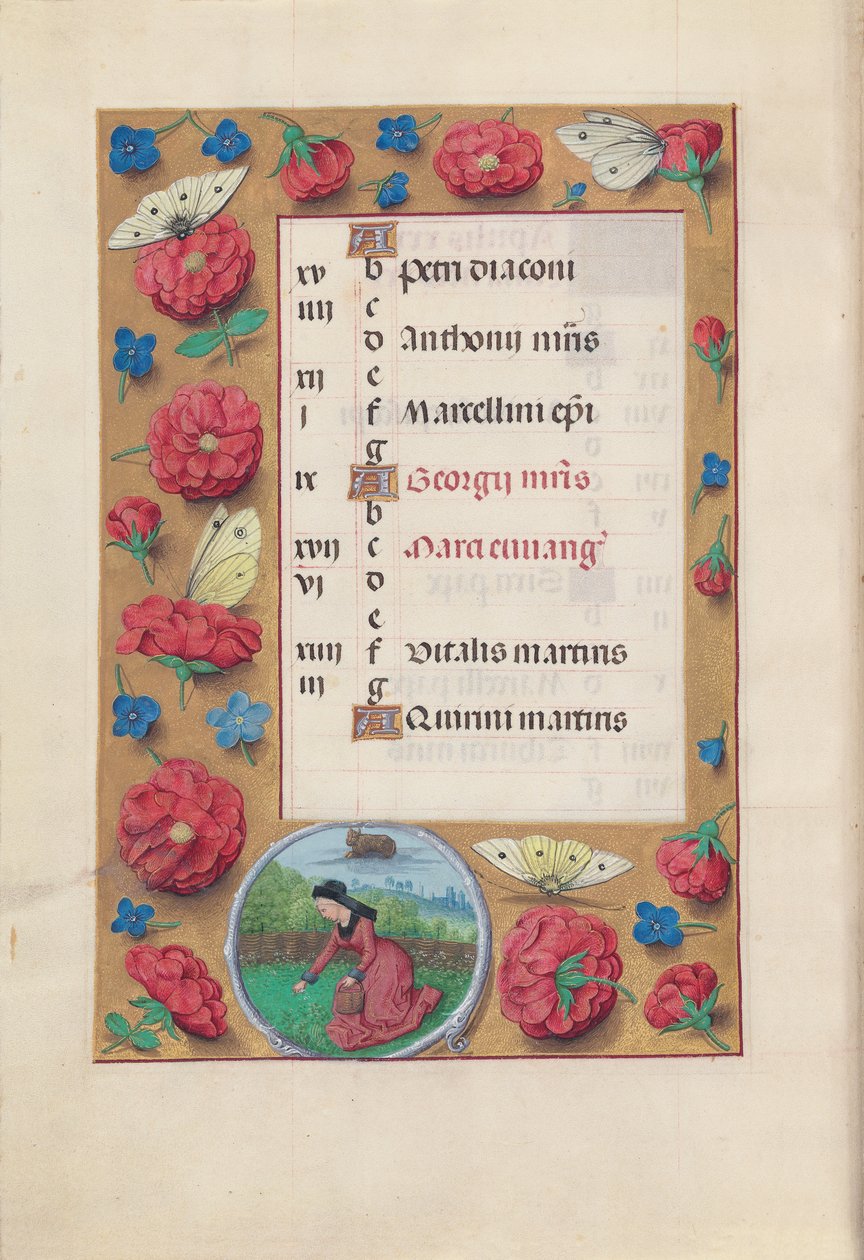 A
xv b Petri diaconi
iiij c
d Anthonij mr̃is
xij e
j f Marcellini ep̃i
g
ix A Georgij mr̃is
b
xvij c Marci ewang᷒
vj d
e
xiiij f Vitalis martiris
iij g
A Quirini martiris